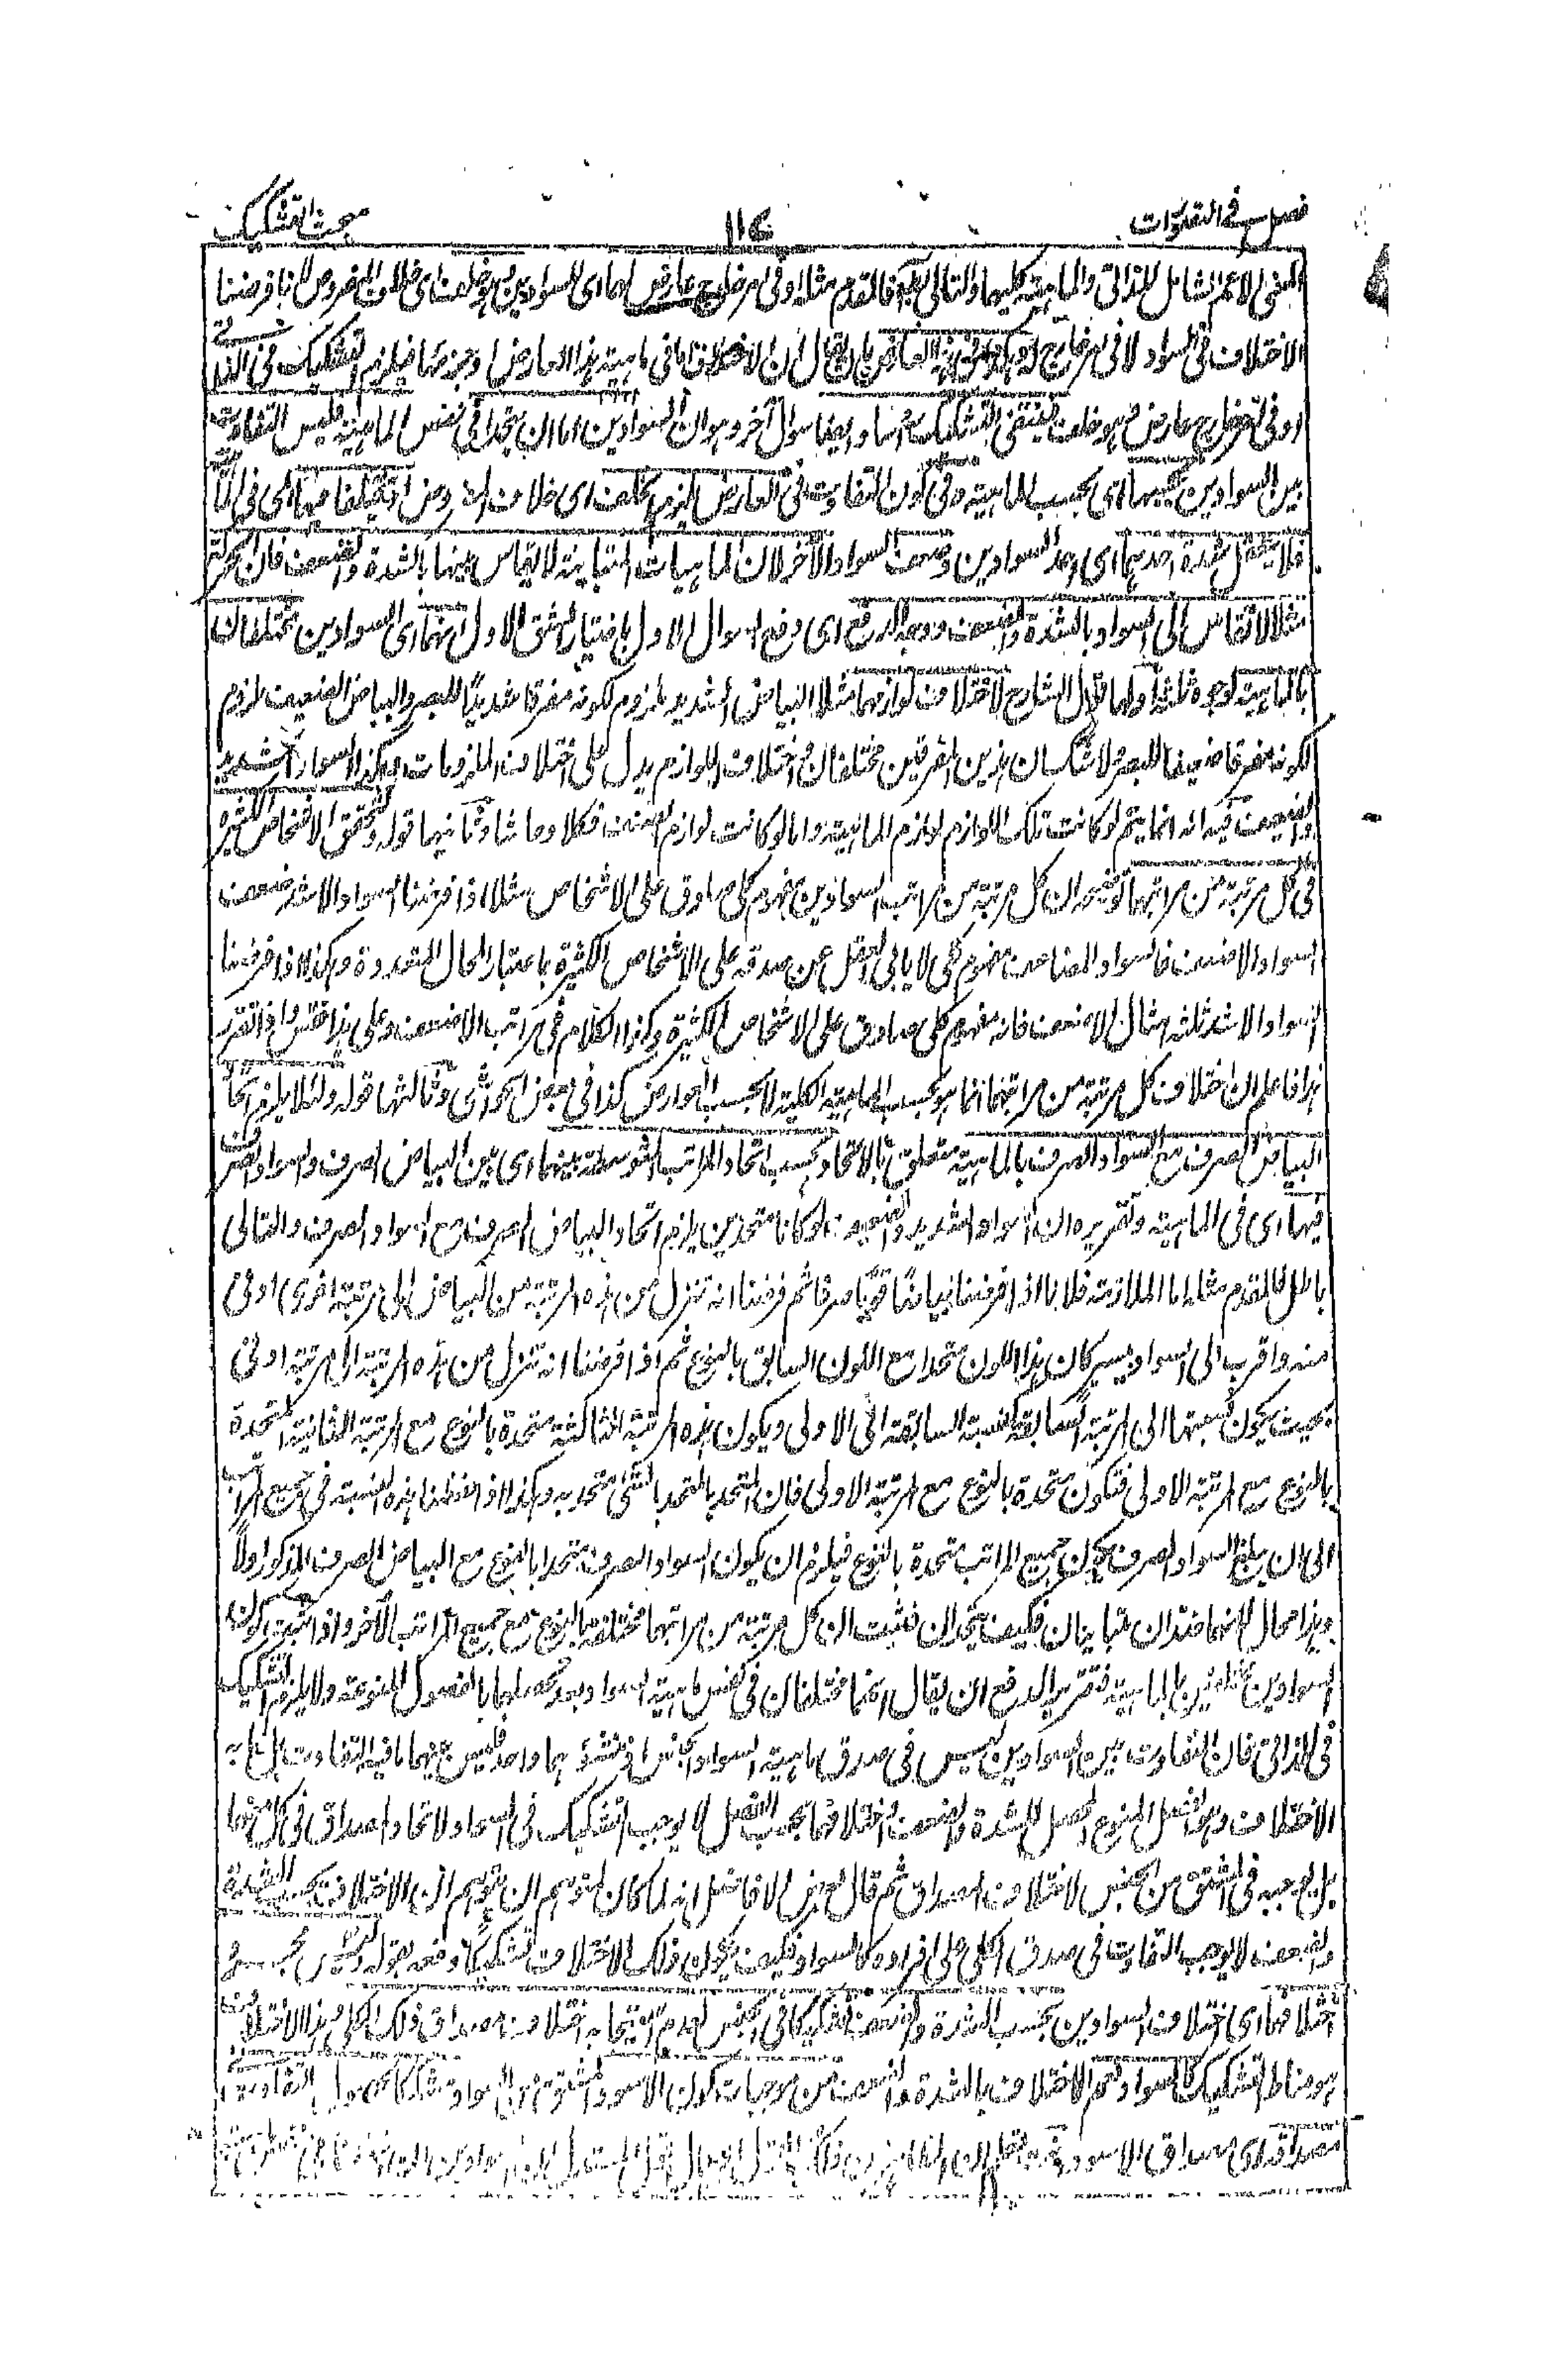 فصل في التصورات ١١٤ مبحث التشكيك
المعنى الاعم الشامل للذاتي والماهية كليهما والتالي باطل فالمقدم مثله او في امر خارج عارض لهما اى للسوادين هو خلف اى خلاف المفروض لانا فرضنا
الاختلاف في السواد لا في امر خارج بان يقال ان الاختلاف اما في ماهية هذا العارض او جزئها فيلزم التشكيك في الذاتي
او في امر خارج عارض فهو خلف فينتفي التشكيك وايضا سوال آخر وهو ان السوادين اما ان يتحدا في نفس الماهية فليس التفاوت
بين السوادين بحسبها اى بحسب الماهية وفي كون التفاوت في العارض يلزم الخلف اى خلاف المفروض او يختلفا فيها اى في الماهية
فلا يعقل شدة احدهما اى احد السوادين وضعف السواد الآخر لان الماهيات المتباينة لا تقاس بينها بالشدة والضعف فان الحركة
مثلا لا تقاس الى السواد بالشدة والضعف ووجه الدفع اى دفع السوال الاول باختيار الشق الاول انهما اى السوادين مختلفان
بالماهية لوجوه ثلثة اولها قال الشارح لاختلاف لوازمهما مثلا البياض الشديد ملزوم لكونه مفرقا شديدا للبصر والبياض الضعيف ملزوم
لكونه مفرقا ضعيفا للبصر ولا شك ان هذين المفرقين مختلفان واختلاف اللوازم يدل على اختلاف الملزومات وهكذا السواد الشديد
والضعيف فيه انه انما يتم لو كانت تلك اللوازم لوازم الماهية واما لو كانت لوازم الصنف فكلا وحاشا وثانيها قوله ولتحقق الاشخاص الكثيرة
في كل مرتبة من مراتبهما توضيحه ان كل مرتبة من مراتب السوادين مفهوم كلي صادق على الاشخاص مثلا اذا فرضنا السواد الاشد ضعف
السواد الاضعف فالسواد المضاعف مفهوم كلي لا يابى العقل عن صدقه على الاشخاص الكثيرة باعتبار المحال المتعددة وهكذا اذا فرضنا
السواد الاشد ثلثة امثال الاضعف فانه مفهوم كلي صادق على الاشخاص الكثيرة وكذا الكلام في مراتب الاضعف وعلى هذا فقس واذا تقرر
هذا فاعلم ان اختلاف كل مرتبة من مراتبهما انما هو بحسب الماهية الكلية لا بحسب العوارض كذا في بعض الحواشي وثالثها قوله ولئلا يلزم اتحاد
البياض الصرف مع السواد الصرف بالماهية متعلق بالاتحاد بحسب اتحاد المراتب المتوسطة بينهما اى بين البياض الصرف والسواد الصرف
فيها اى في الماهية وتقريره ان السواد الشديد والضعيف لو كانا متحدين يلزم اتحاد البياض الصرف مع السواد الصرف والتالي
باطل فالمقدم مثله اما الملازمة فلانا اذا فرضنا بياضا قويا صرفا ثم فرضنا انه تنزل من هذه المرتبة من البياض الى مرتبة اخرى ادنى
منه واقرب الى السواد بيسير كان هذا اللون متحدا مع اللون السابق بالنوع ثم اذا فرضنا انه تنزل من هذه المرتبة الى مرتبة ادنى
بحيث يكون نسبتها الى المرتبة السابقة كنسبة السابقة الى الاولى ويكون هذه المرتبة الثالثة متحدة بالنوع مع المرتبة الثانية المتحدة
بالنوع مع المرتبة الاولى فتكون متحدة بالنوع مع المرتبة الاولى فان المتحد بالمتحد بالشئ متحد به وهكذا اذا حفظنا هذه النسبة في جميع المراتب
الى ان يبلغ السواد الصرف يكون جميع المراتب متحدة بالنوع فيلزم ان يكون السواد الصرف متحدا بالنوع مع البياض الصرف المذكور اولا
وهذا محال لانهما ضدان متباينان فكيف يتحدان فثبت ان كل مرتبة من مراتبهما مختلفة بالنوع مع جميع المراتب الآخر واذا ثبت كون
السوادين مختلفين بالماهية فتقرير الدفع ان يقال انهما مختلفان في نفس ماهية السواد بعد تحصلهما بالفصول المنوعة ولا يلزم التشكيك
في الذاتي فان التفاوت بين السوادين ليس في صدق ماهية السواد الجنس واحد فليس فيهما ما فيه التفاوت بل ما به
الاختلاف وهو الفصل المنوع المحصل للشدة والضعف واختلافهما بحسب الفصل لا يوجب التشكيك في السواد لاتحاد المصداق في كل منهما
بل يوجبه في المشتق من الجنس لاختلاف المصداق ثم قال بعض الافاضل انه لما كان لمتوهم ان يتوهم ان الاختلاف بحسب الشدة
والضعف لا يوجب التفاوت في صدق الكلي على افراده كالسواد فكيف يكون ذلك الاختلاف تشكيكا دفعه بقوله وليس مجرد
اختلافهما اى اختلاف السوادين بحسب الشدة والضعف تشكيكا في الجنس لعدم استيجابه اختلاف مصداق ذلك الكلي وهذا الاختلاف
هو مناط التشكيك كالسواد نعم الاختلاف بالشدة والضعف من موجبات كون الاسود المشتق من السواد مشككا لحصول التفاوت في
مصداقه اى مصداق الاسود